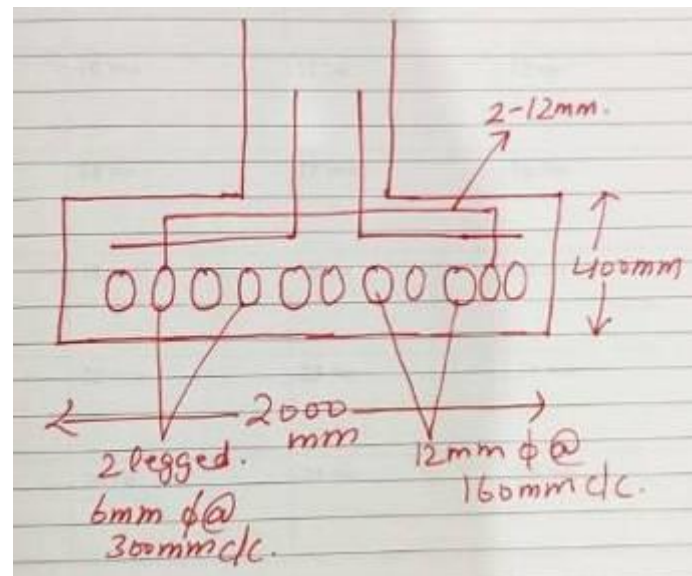 2-12mm.
400mm
2000
mm
2 legged.
6mm ϕ@
300mm c/c.
12mm ϕ @
160mm c/c.